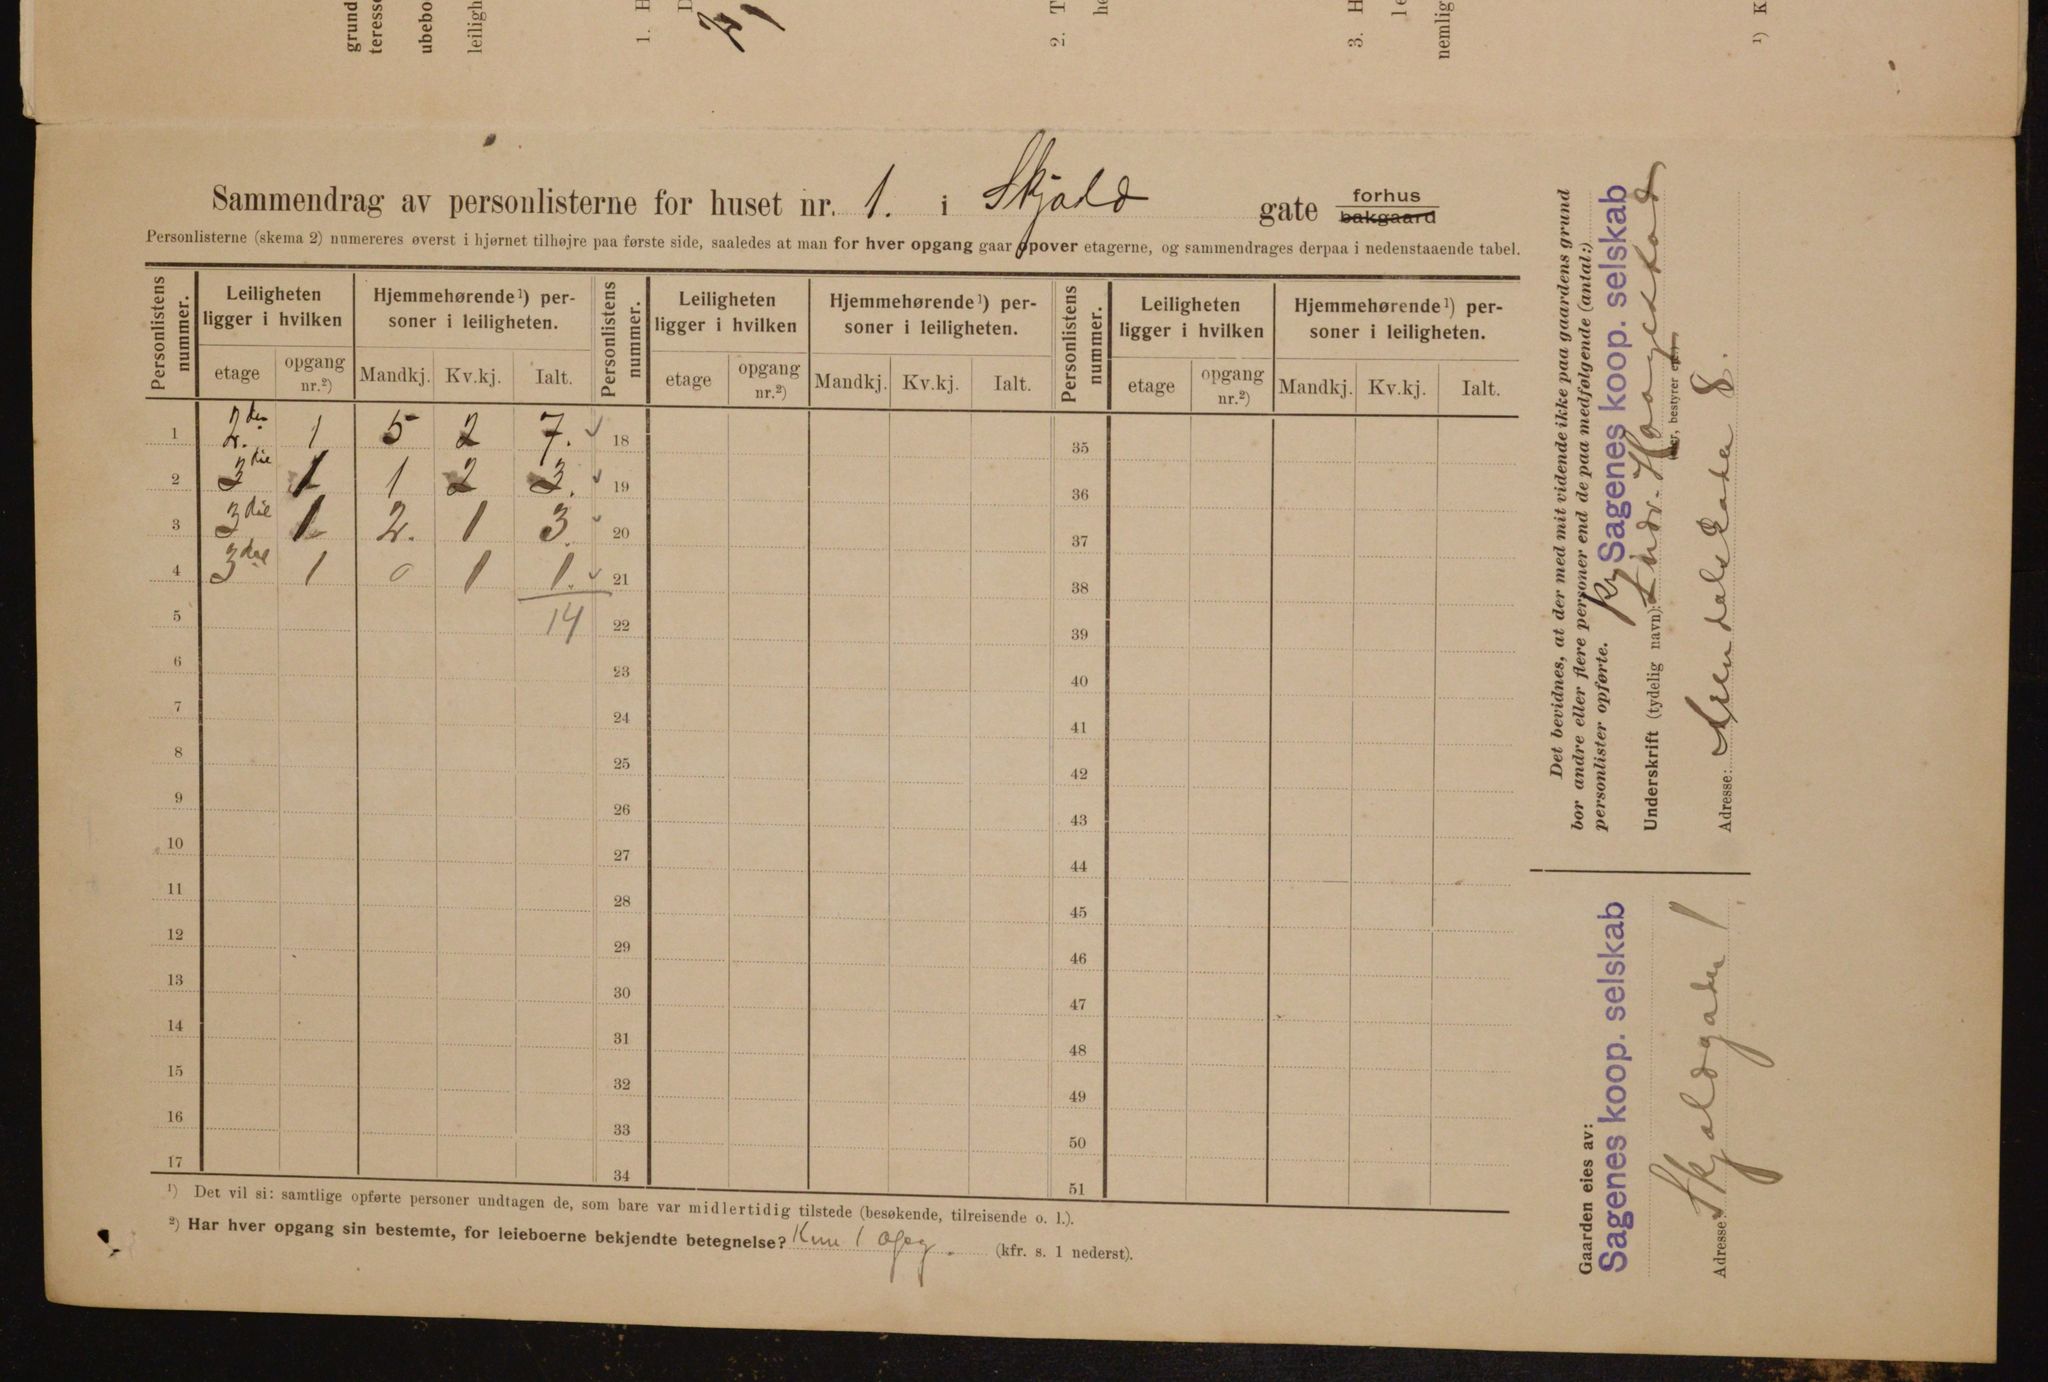 grund
teresse
ubebo
leiligh
1. H
D
2. T
he
3. H
le
nemlig
1) K
Sammendrag av personlisterne for huset nr. 1. i Skjold gate forhus bakgaard
Personlisterne (skema 2) numereres øverst i hjørnet tilhøjre paa første side, saaledes at man for hver opgang gaar opover etagerne, og sammendrages derpaa i nedenstaaende tabel.
Personlistens nummer. Leiligheten ligger i hvilken Hjemmehørende 1) personer i leiligheten. Personlistens nummer. Leiligheten ligger i hvilken Hjemmehørende 1) personer i leiligheten. Personlistens nummer. Leiligheten ligger i hvilken Hjemmehørende 1) personer i leiligheten.
etage opgang nr. 2) Mandkj. Kv.kj. Ialt. etage opgang nr. 2) Mandkj. Kv.kj. Ialt. etage opgang nr. 2) Mandkj. Kv.kj. Ialt.
1 2den 1 5 2 7. 18 35
2 3die 1 1 2 3. 19 36
3 3die 1 2. 1 3. 20 37
4 3die 1 0 1 1. 21 38
5 14 22 39
6 23 40
7 24 41
8 25 42
9 26 43
10 27 44
11 28 45
12 29 46
13 30 47
14 31 48
15 32 49
16 33 50
17 34 51
1) Det vil si: samtlige opførte personer undtagen de, som bare var midlertidig tilstede (besøkende, tilreisende o. l.).
2) Har hver opgang sin bestemte, for leieboerne bekjendte betegnelse? Kun 1 opg. (kfr. s. 1 nederst).
Det bevidnes, at der med mit vidende ikke paa gaardens grund
bor andre eller flere personer end de paa medfølgende (antal:)
personlister opførte.
Sagenes koop. selskab
Underskrift (tydelig navn):
(eier, bestyrer etc.)
Adresse: Arendalsgaden 8.
Gaarden eies av:
Sagenes koop. selskab
Adresse: Skjoldgaden 1